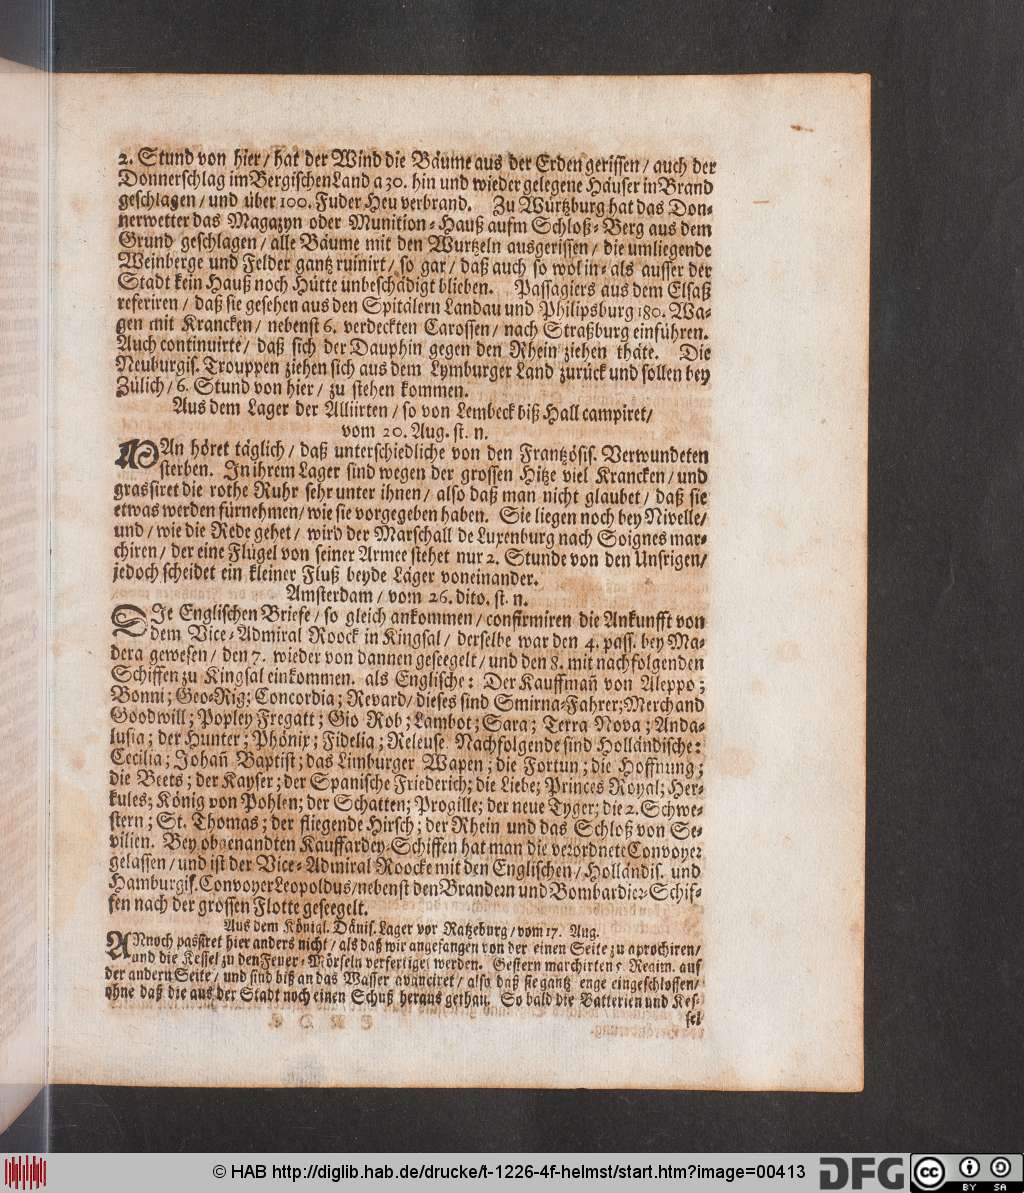 2. Stund von hier/ hat der Wind die Bäume aus der Erden gerissen/ auch der
Donnerschlag im Bergischen Land a 30. hin und wieder gelegene Häuser in Brand
geschlagen/ und über 100. Fuder Heu verbrand. Zu Würtzburg hat das Don-
nerwetter das Magazyn oder Munition-Hauß aufm Schloß-Berg aus dem
Grund geschlagen/ alle Bäume mit den Wurtzeln ausgerissen/ die umliegende
Weinberge und Felder gantz ruinirt/ so gar/ daß auch so wol in- als ausser der
Stadt kein Hauß noch Hütte unbeschädigt blieben. Passagiers aus dem Elsaß
referiren/ daß sie gesehen aus den Spitälern Landau und Philipsburg 180. Wa-
gen mit Krancken/ nebenst 6. verdeckten Carossen/ nach Straßburg einführen.
Auch continuirte/ daß sich der Dauphin gegen den Rhein ziehen thäte. Die
Neuburgis. Trouppen ziehen sich aus dem Lymburger Land zurück und sollen bey
Zülich/ 6. Stund von hier/ zu stehen kommen.
Aus dem Lager der Alliirten/ so von Lembeck biß Hall campiret/
vom 20. Aug. st. n.
MAn höret täglich/ daß unterschiedliche von den Frantzösis. Verwundeten
sterben. In ihrem Lager sind wegen der grossen Hitze viel Krancken/ und
grassiret die rothe Ruhr sehr unter ihnen/ also daß man nicht glaubet/ daß sie
etwas werden fürnehmen/ wie sie vorgegeben haben. Sie liegen noch bey Nivelle/
und/ wie die Rede gehet/ wird der Marschall de Luxenburg nach Soignes mar-
chiren/ der eine Flügel von seiner Armee stehet nur 2. Stunde von den Unsrigen/
jedoch scheidet ein kleiner Fluß beyde Läger voneinander.
Amsterdam/ vom 26. dito. st. n.
DIe Englischen Briefe/ so gleich ankommen/ confirmiren die Ankunfft von
dem Vice-Admiral Roock in Kingsal/ derselbe war den 4. pass. bey Ma-
dera gewesen/ den 7. wieder von dannen geseegelt/ und den 8. mit nachfolgenden
Schiffen zu Kingsal einkommen. als Englische: Der Kauffmañ von Aleppo;
Bonni; Geo-Rig; Concordia; Revard/ dieses sind Smirna-Fahrer; Merchand
Goodwill; Popley Fregatt; Gio Rob; Lambot; Sara; Terra Nova; Anda-
lusia; der Hunter; Phönix; Fidelia; Releuse. Nachfolgende sind Holländische:
Cecilia; Johañ Baptist; das Limburger Wapen; die Fortun; die Hoffnung;
die Beets; der Kayser; der Spanische Friederich; die Liebe; Princes Royal; Her-
kules; König von Pohlen; der Schatten; Progille; der neue Tyger; die 2. Schwe-
stern; St. Thomas; der fliegende Hirsch; der Rhein und das Schloß von Se-
vilien. Bey obgenandten Kauffardey-Schiffen hat man die verordnete Convoyer
gelassen/ und ist der Vice-Admiral Roocke mit den Englischen/ Holländis. und
Hamburgis. Convoyer Leopoldus/ nebenst den Brandern und Bombardier-Schif-
fen nach der grossen Flotte geseegelt.
Aus dem Königl. Dänis. Lager vor Ratzeburg/ vom 17. Aug.
ANnoch passiret hier anders nicht/ als daß wir angefangen von der einen Seite zu aprochiren/
und die Kessel zu den Feuer-Mörseln verfertiget werden. Gestern marchirten 5. Regim. auf
der andern Seite/ und sind biß an das Wasser avanciret/ also daß sie gantz enge eingeschlossen/
ohne daß die aus der Stadt noch einen Schuß heraus gethan. So bald die Batterien und Kes-
sel
© HAB http://diglib.hab.de/drucke/t-1226-4f-helmst/start.htm?image=00413
DFG
cc
BY SA